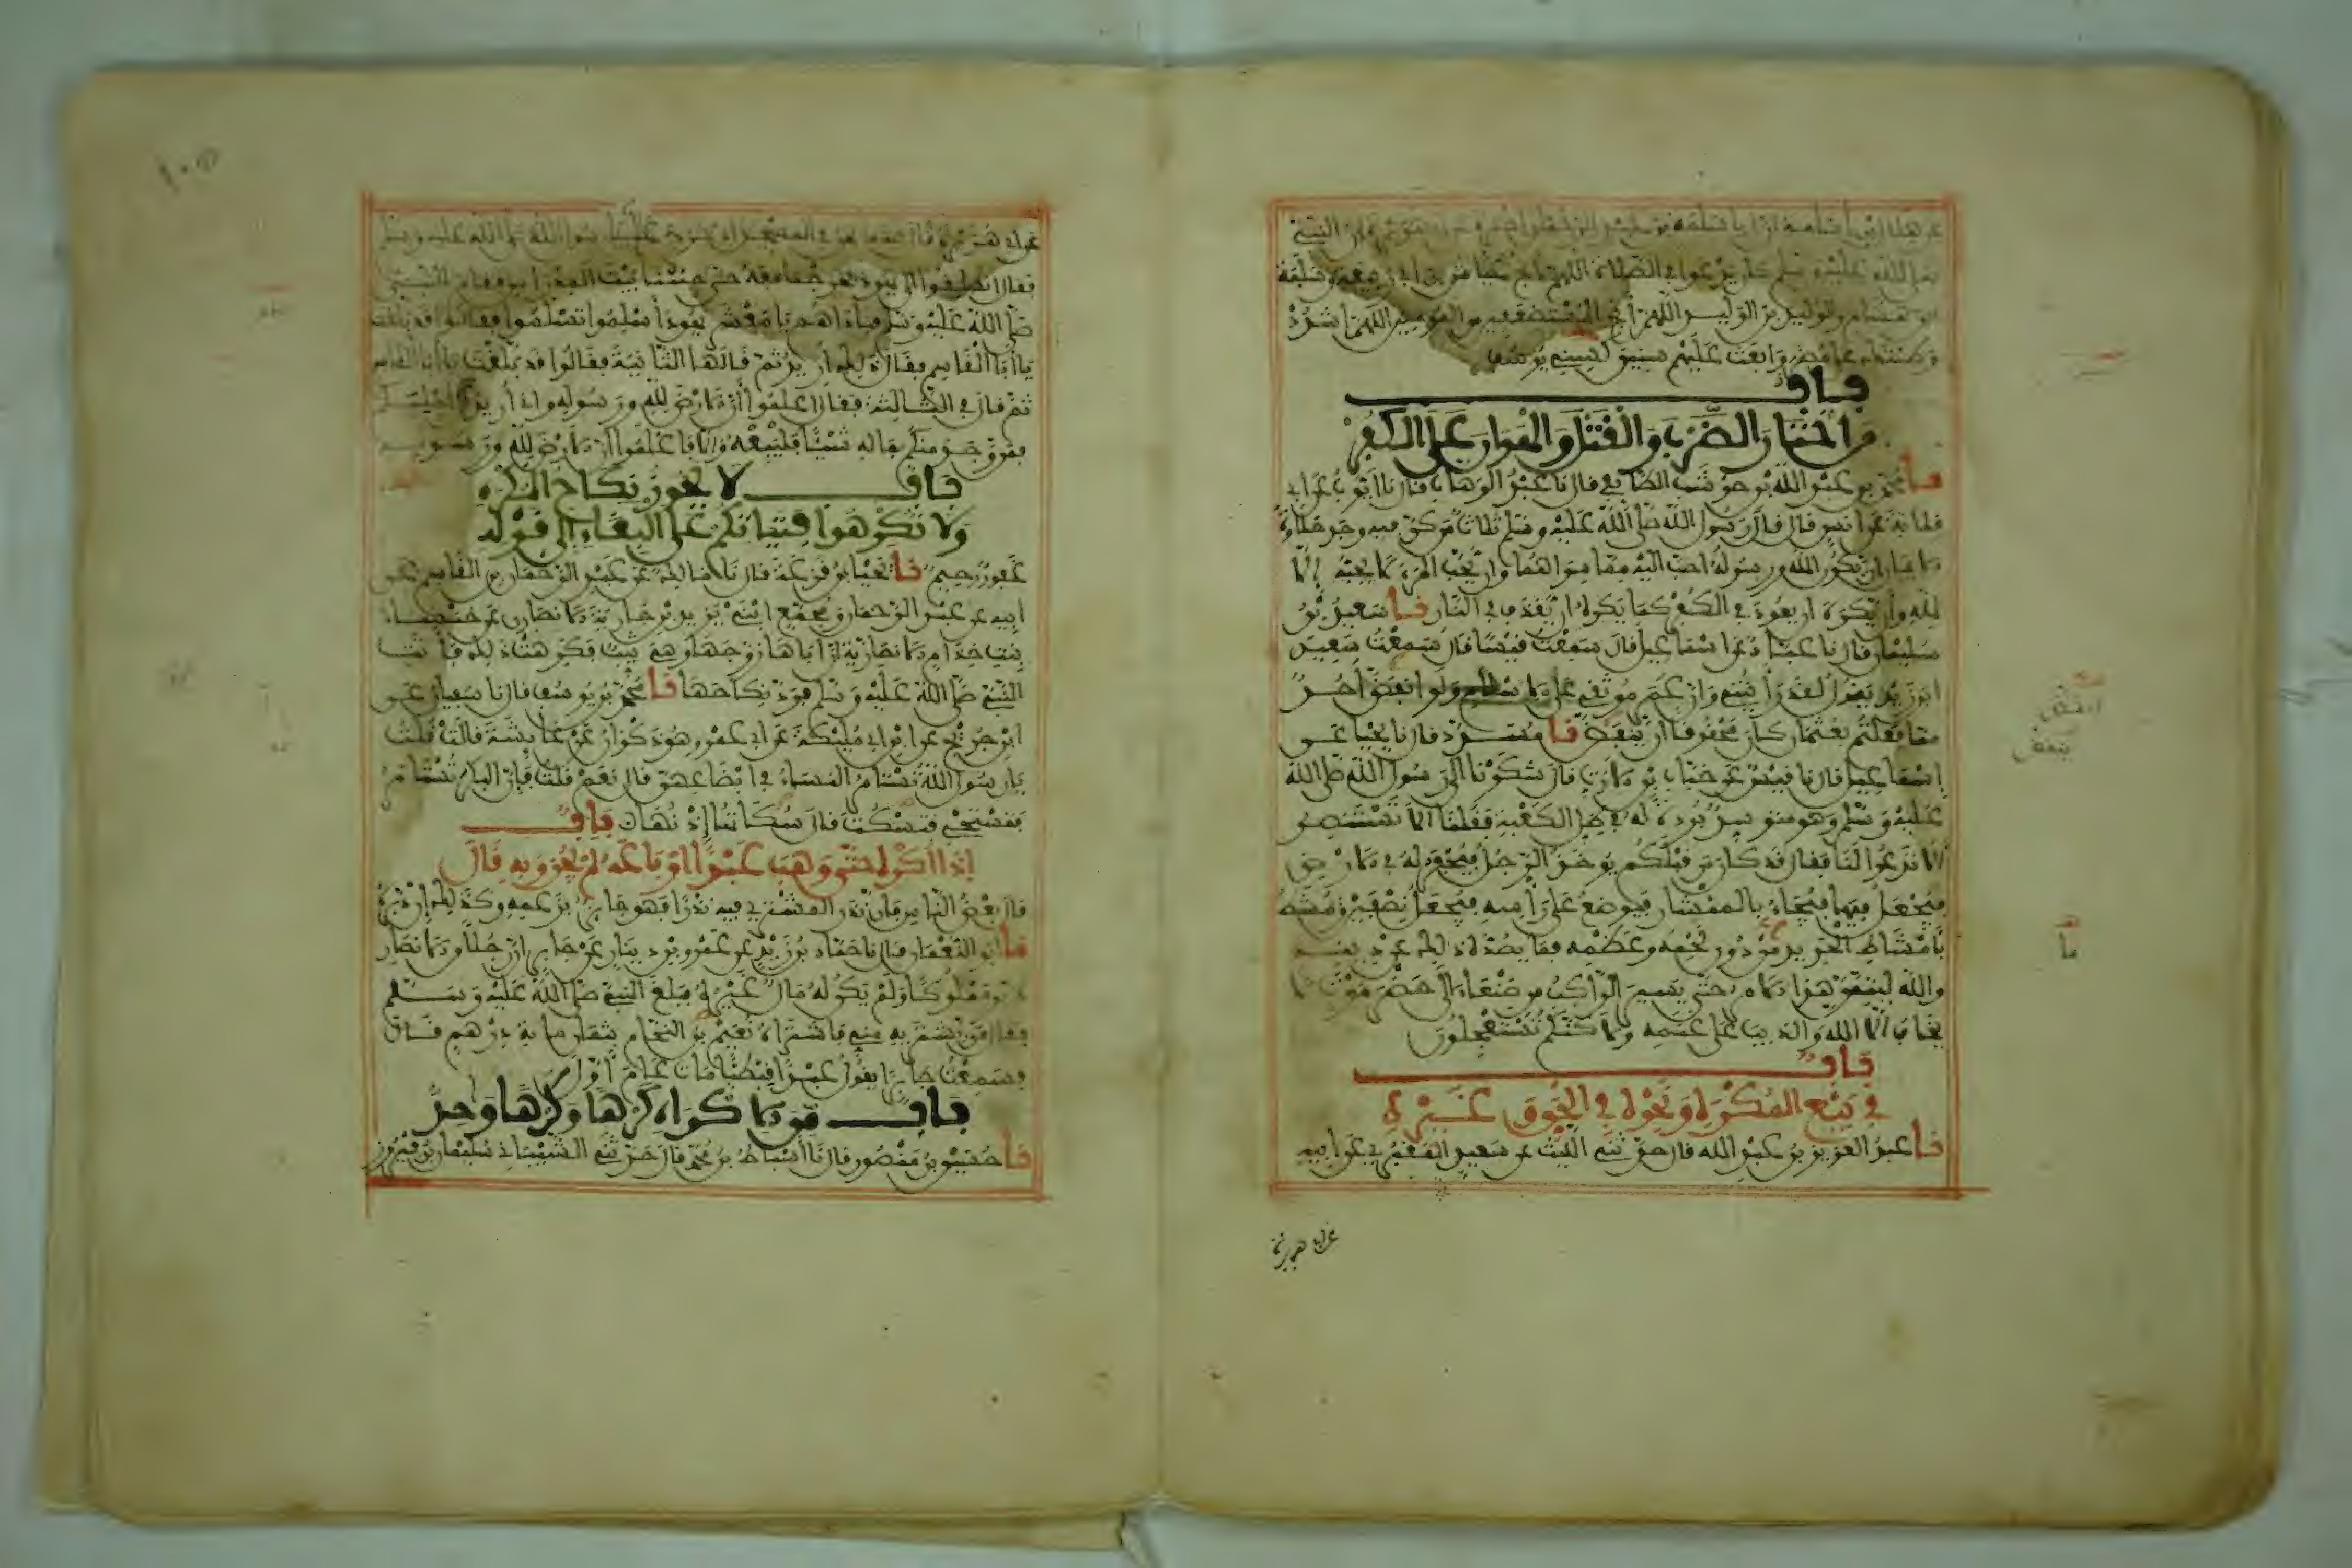 عن هلال بن أسامة أن أبا سلمة بن عبد الرحمن أخبره عن أبي هريرة أن النبي
صلى الله عليه وسلم كان يدعوا في الصلاة اللهم أنج عياش بن أبي ربيعة وسلمة
بن هشام والوليد بن الوليد اللهم أنج المستضعفين من المؤمنين اللهم اشدد
وطأتك على مضر وابعث عليهم سنين كسني يوسف
باب
من اختار الضرب والقتل والهوان على الكفر
نا محمد بن عبد الله بن حوشب الطائفي قال نا عبد الوهاب قال نا أيوب عن أبي
قلابة عن أنس قال قال رسول الله صلى الله عليه وسلم ثلاث من كن فيه وجد حلاوة
الإيمان أن يكون الله ورسوله أحب إليه مما سواهما وأن يحب المرء لا يحبه إلا
لله وأن يكره أن يعود في الكفر كما يكره أن يقذف في النار نا سعيد بن
سليمان قال نا عباد عن إسماعيل قال سمعت قيسا قال سمعت سعيد
ابن زيد يقول لقد رأيتني وإن عمر موثقي على الإسلام ولو انقض أحد
مما فعلتم بعثمان كان محقوقا أن ينقض نا مسدد قال نا يحيى عن
إسماعيل قال نا قيس عن خباب بن الأرت قال شكونا إلى رسول الله صلى الله
عليه وسلم وهو متوسد بردة له في ظل الكعبة فقلنا ألا تستنصر
ألا تدعوا لنا فقال قد كان من قبلكم يوخذ الرجل فيحفر له في الأرض
فيجعل فيها فيجاء بالمنشار فيوضع على رأسه فيجعل نصفين ويمشط
بأمشاط الحديد من دون لحمه وعظمه فما يصده ذلك عن دينه
والله ليتمن هذا الأمر حتى يسير الراكب من صنعاء إلى حضرموت لا
يخاف إلا الله والذيب على غنمه ولاكنكم تستعجلون
باب
في بيع المكره ونحوه في الحق وغيره
نا عبد العزيز بن عبد الله قال حدثني الليث عن سعيد المقبري عن أبيه
عن أبي هريرة
عن أبي هريرة قال بينما نحن في المسجد إذ خرج علينا رسول الله صلى الله عليه وسلم
فقال انطلقوا إلى يهود فخرجنا معه حتى جئنا بيت المدراس فقام النبي
صلى الله عليه وسلم فناداهم يا معشر يهود أسلموا تسلموا فقالوا قد بلغت
يا أبا القاسم فقال ذلك أريد ثم قالها الثانية فقالوا قد بلغت يا أبا القاسم
ثم قال في الثالثة فقال اعلموا أن الأرض لله ورسوله وإني أريد أن أجليكم
فمن وجد منكم بماله شيئا فليبعه وإلا فاعلموا أن الأرض لله ورسوله
باب لا يجوز نكاح المكره
ولا تكرهوا فتياتكم على البغاء إلى قوله
غفور رحيم نا يحيى بن قزعة قال نا مالك عن عبد الرحمن بن القاسم عن
أبيه عن عبد الرحمن ومجمع ابني يزيد بن جارية الأنصاري عن خنساء
بنت خذام الأنصارية أن أباها زوجها وهي ثيب فكرهت ذلك فأتت
النبي صلى الله عليه وسلم فرد نكاحها نا محمد بن يوسف قال نا سفيان عن
ابن جريج عن ابن أبي مليكة عن أبي عمرو هو ذكوان عن عايشة قالت قلت
يا رسول الله تستامر النساء في ابضاعهن قال نعم قلت فإن البكر تستامر
فتستحي فتسكت قال سكاتها إذنها باب
إذا أكره حتى وهب عبدا أو باعه لم يجز وبه قال
قال بعض الناس فإن نذر المشتري فيه نذرا فهو جايز بزعمه وكذلك إن دبره
نا أبو النعمان قال نا حماد بن زيد عن عمرو بن دينار عن جابر أن رجلا من الأنصار
دبر مملوكا ولم يكن له مال غيره فبلغ النبي صلى الله عليه وسلم
فقال من يشتريه مني فاشتراه نعيم بن النحام بثمان ماية درهم قال
فسمعت جابرا يقول عبدا قبطيا مات عام أول
باب من الإكراه كرها وكرها واحد
نا حسين بن منصور قال نا أسباط بن محمد قال حدثني الشيباني سليمان بن فيروز